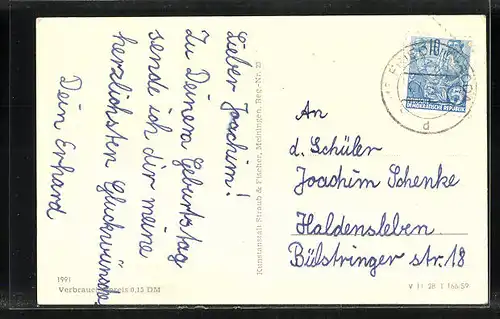 Lieber Joachim!
Zu Deinem Geburtstag
sende ich dir meine
herzlichsten Glückwünsche
Dein Erhard
Kunstanstalt Straub & Fischer, Meiningen, Reg.-Nr. 23
10
DEUTSCHE
DEMOKRATISCHE REPUBLIK
d
An
d. Schüler
Joachim Schenke
Haldensleben
Bülstringer str. 18
1991
Verbraucherpreis 0,15 DM
V 11 28 1 166/59